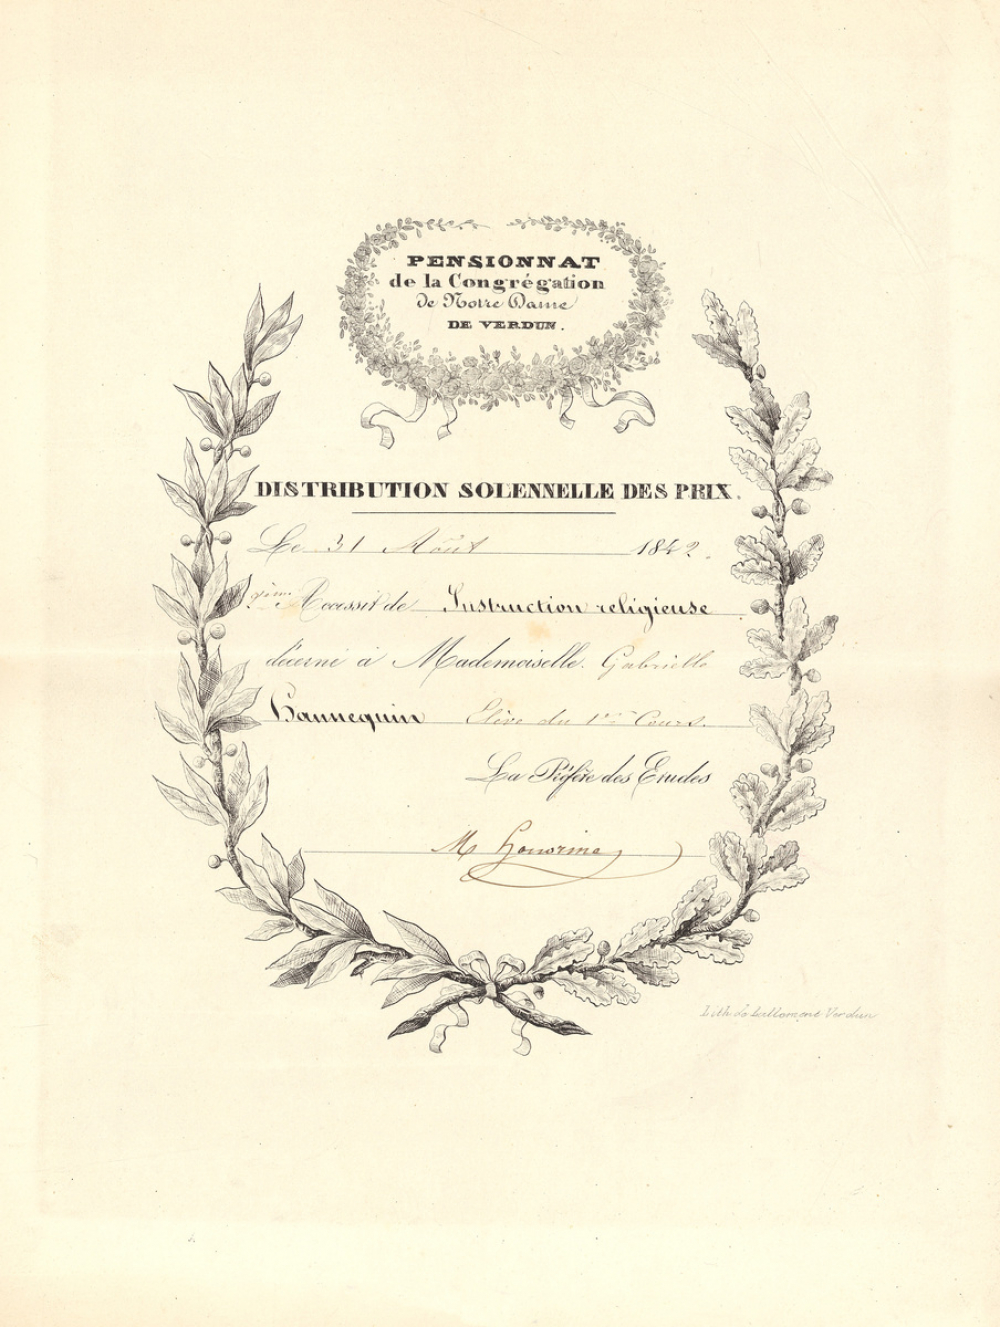 PENSIONNAT
de la Congrégation
de Notre Dame
DE VERDUN.
DISTRIBUTION SOLENNELLE DES PRIX.
Le 31 Août 1842.
Accessit de Instruction religieuse
décerné à Mademoiselle Gabrielle
Hannequin Elève du 1er Cours.
La Préfète des Etudes
M Honorine
Lith. de Lallemant Verdun